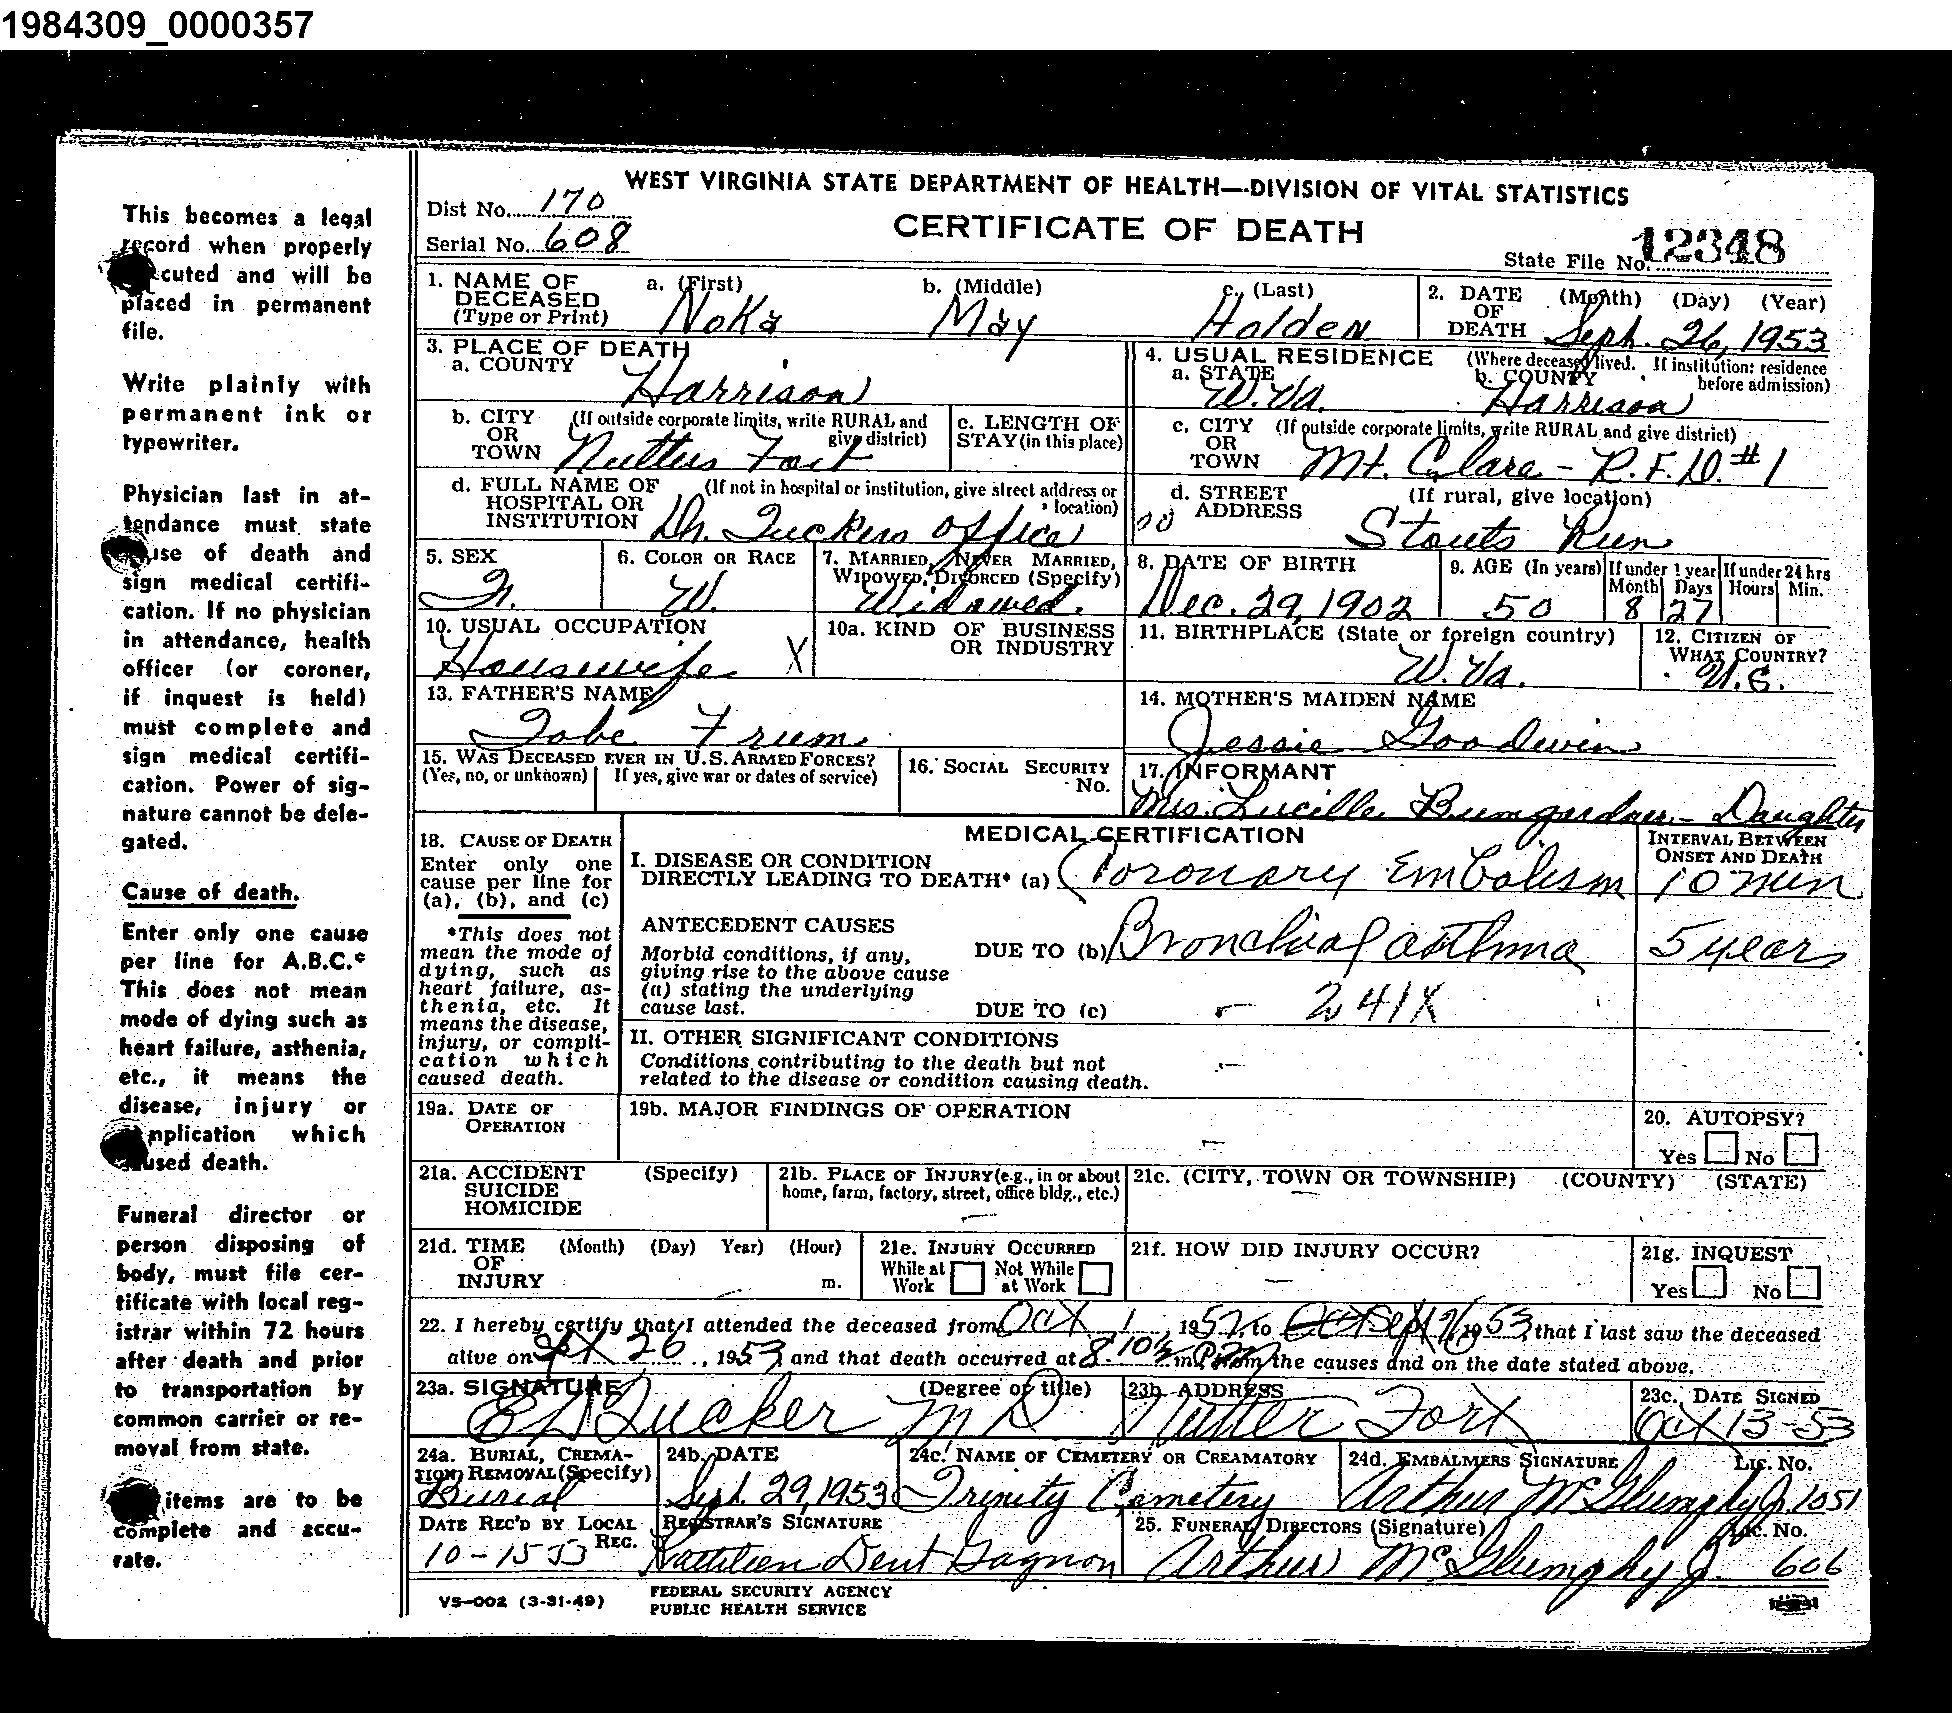 1984309_0000357
This becomes a legal
record when properly
cuted and will be
placed in permanent
file.
Write plainly with
permanent ink or
typewriter.
Physician last in at-
tendance must state
use of death and
sign medical certifi-
cation. If no physician
in attendance, health
officer (or coroner,
if inquest is held)
must complete and
sign medical certifi-
cation. Power of sig-
nature cannot be dele-
gated.
Cause of death.
Enter only one cause
per line for A.B.C.*
This does not mean
mode of dying such as
heart failure, asthenia,
etc., it means the
disease, injury or
mplication which
used death.
Funeral director or
person disposing of
body, must file cer-
tificate with local reg-
istrar within 72 hours
after death and prior
to transportation by
common carrier or re-
moval from state.
items are to be
complete and accu-
rate.
WEST VIRGINIA STATE DEPARTMENT OF HEALTH—DIVISION OF VITAL STATISTICS
Dist No. 170
CERTIFICATE OF DEATH
Serial No. 608
State File No. 12348
1. NAME OF DECEASED (Type or Print) a. (First) Noka b. (Middle) May c. (Last) Holden
2. DATE OF DEATH (Month) (Day) (Year) Sept. 26, 1953
3. PLACE OF DEATH
a. COUNTY Harrison
4. USUAL RESIDENCE (Where deceased lived. If institution: residence before admission)
a. STATE W. Va. b. COUNTY Harrison
b. CITY OR TOWN (If outside corporate limits, write RURAL and give district) Nutter Fort
c. LENGTH OF STAY (in this place)
c. CITY OR TOWN (If outside corporate limits, write RURAL and give district) Mt. Clare - R.F.D. #1
d. FULL NAME OF HOSPITAL OR INSTITUTION (If not in hospital or institution, give street address or location) Dr. Tuckers Office
d. STREET ADDRESS (If rural, give location) Stouts Run
5. SEX F.
6. COLOR OR RACE W.
7. MARRIED, NEVER MARRIED, WIDOWED, DIVORCED (Specify) Widowed.
8. DATE OF BIRTH Dec. 29, 1902
9. AGE (In years) 50 If under 1 year Month 8 Days 27 If under 24 hrs Hours Min.
10. USUAL OCCUPATION Housewife X
10a. KIND OF BUSINESS OR INDUSTRY
11. BIRTHPLACE (State or foreign country) W. Va.
12. CITIZEN OF WHAT COUNTRY? U.S.
13. FATHER'S NAME Tobe Frum
14. MOTHER'S MAIDEN NAME Jessie Goodwin
15. WAS DECEASED EVER IN U.S. ARMED FORCES? (Yes, no, or unknown) If yes, give war or dates of service)
16. SOCIAL SECURITY No.
17. INFORMANT Mrs. Lucille Bumgardner - Daughter
18. CAUSE OF DEATH
Enter only one
cause per line for
(a), (b), and (c)
*This does not
mean the mode of
dying, such as
heart failure, as-
thenia, etc. It
means the disease,
injury, or compli-
cation which
caused death.
MEDICAL CERTIFICATION
INTERVAL BETWEEN ONSET AND DEATH
I. DISEASE OR CONDITION
DIRECTLY LEADING TO DEATH* (a) Coronary Embolism 10 min
ANTECEDENT CAUSES
Morbid conditions, if any,
giving rise to the above cause
(a) stating the underlying
cause last.
DUE TO (b) Bronchial asthma 5 years
DUE TO (c) - 241X
II. OTHER SIGNIFICANT CONDITIONS
Conditions contributing to the death but not
related to the disease or condition causing death. -
19a. DATE OF OPERATION
19b. MAJOR FINDINGS OF OPERATION -
20. AUTOPSY? Yes No
21a. ACCIDENT SUICIDE HOMICIDE (Specify)
21b. PLACE OF INJURY (e.g., in or about home, farm, factory, street, office bldg., etc.) -
21c. (CITY, TOWN OR TOWNSHIP) (COUNTY) (STATE) -
21d. TIME OF INJURY (Month) (Day) Year) (Hour) m.
21e. INJURY OCCURRED While at Work Not While at Work
21f. HOW DID INJURY OCCUR? -
21g. INQUEST Yes No
22. I hereby certify that I attended the deceased from Oct 1, 1952, to Sept 26 1953, that I last saw the deceased
alive on Sept 26, 1953, and that death occurred at 8:10 m., from the causes and on the date stated above.
23a. SIGNATURE (Degree or title) E D Tucker M D
23b. ADDRESS Nutter Fort
23c. DATE SIGNED Oct 13-53
24a. BURIAL, CREMATION, REMOVAL (Specify) Burial
24b. DATE Sept. 29, 1953
24c. NAME OF CEMETERY OR CREAMATORY Trinity Cemetery
24d. EMBALMERS SIGNATURE Lic. No. Arthur McGlumphy Jr. 1051
DATE REC'D BY LOCAL REG. 10-15 53
REGISTRAR'S SIGNATURE Kathleen Dent Gagnon
25. FUNERAL DIRECTORS (Signature) Lic. No. Arthur McGlumphy Jr. 606
VS-002 (3-31-49)
FEDERAL SECURITY AGENCY
PUBLIC HEALTH SERVICE